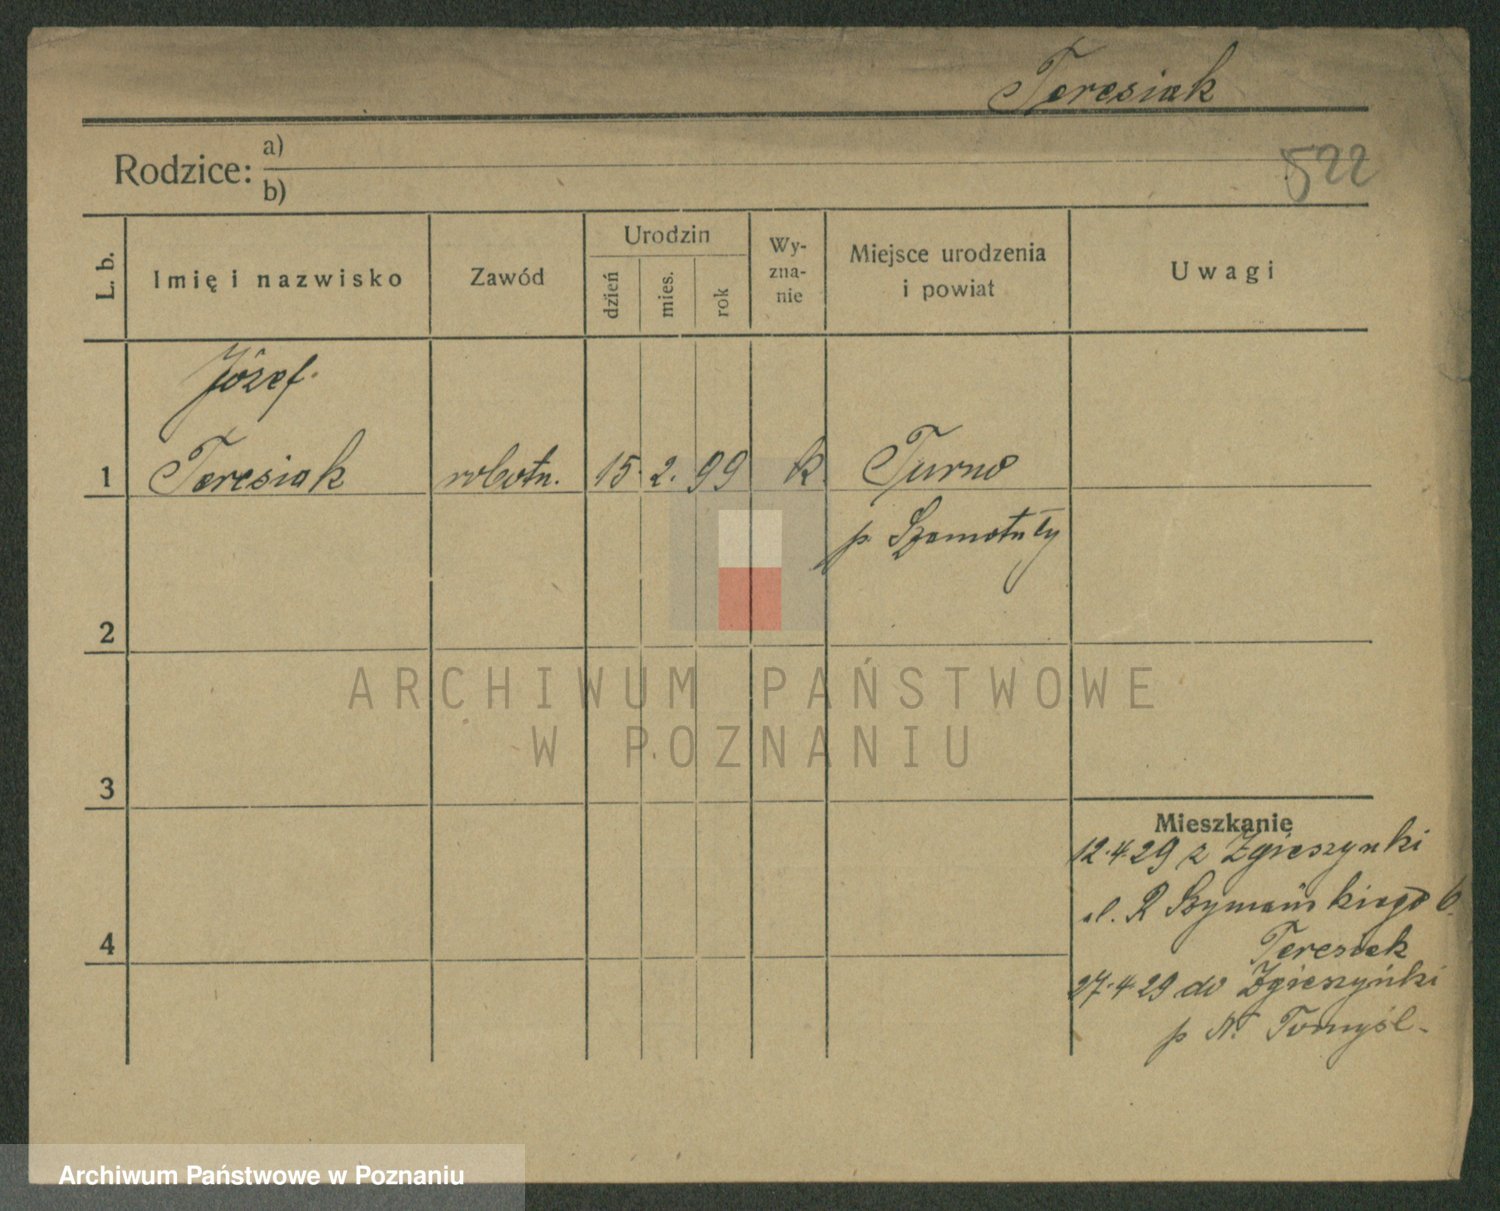 Teresiak
Rodzice: a)
b)
522
L. b.
Imię i nazwisko
Zawód
Urodzin
dzień
mies.
rok
Wy-
zna-
nie
Miejsce urodzenia
i powiat
Uwagi
Józef
1 Teresiak robotn. 15. 2. 99 k. Turno
p. Szamotuły
2
3
4
Mieszkanie
12.4.29 z Zgieszynki
ul. R Szymańskiego 6.
Teresiak
27.4.29 do Zgieszyńki
p N. Tomyśl.
ARCHIWUM PAŃSTWOWE
W POZNANIU
Archiwum Państwowe w Poznaniu